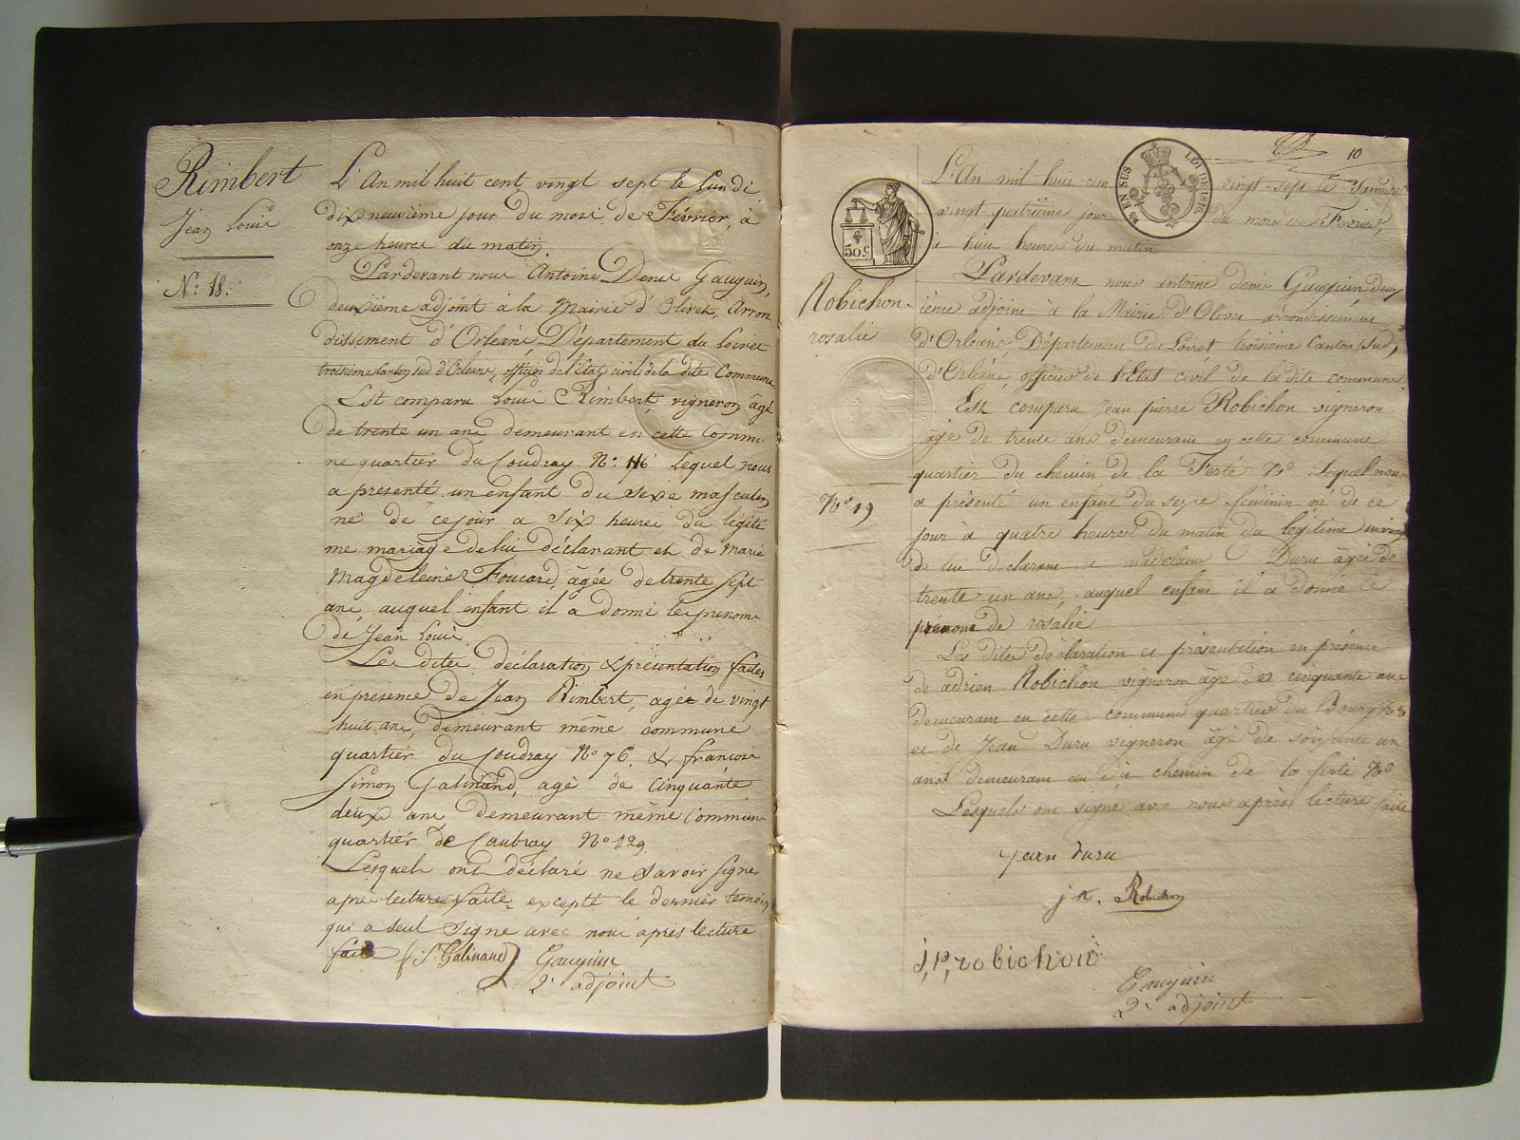 Rimbert
Jean Louis
N° 18.
L'An mil huit cent vingt sept le Lundi
dix neuvième jour du mois de Février, à
onze heures du matin.
Pardevant nous Antoine Denis Gauguin,
deuxième adjoint à la Mairie d'Olivet, Arron
dissement d'Orléans Département du Loiret
troisième Canton sud d'Orléans, officier de l'état civil de la dite Commune
Est comparu Louis Rimbert, vigneron âgé
de trente un ans demeurant en cette Commu
ne quartier du Coudray N° 116 lequel nous
a présenté un enfant du sexe masculin
né de ce jour a six heures du légiti
me mariage de lui déclarant et de Marie
Magdeleine Foucard, âgée de trente sept
ans, auquel enfant il a donné les prénoms
de Jean Louis
Les dites déclaration & présentation faites
en présence de Jean Rimbert, agé de vingt
huit ans, demeurant même commune
quartier du Coudray N° 76. & françois
Simon Galinand, agé de Cinquante
deux ans demeurant même Commune
quartier de Caubray N° 129
Lesquels ont déclaré ne Savoir Signe
après lecture faite excepté le dernier temoin
qui a seul Signe avec nous après lecture
faite S. Galinand Gauguin
2e adjoint
10
EN SUS
LOI
50 C
L'An mil huit cen vingt-sept le Samedi
vingt quatrième jour du mois de Février,
à huit heures du matin
Robichon
rosalie
N° 19
Pardevant nous antoine denis Gauguin deux
ième adjoint à la Mairie d'Olivet arrondissement
d'Orléans, Département du Loiret troisième Canton Sud,
d'Orléans, officier de l'Etat civil de la dite commune
Est comparu Jean pierre Robichon vigneron
âgé de trente ans demeurant en cette commune
quartier du chemin de la Ferté N° Lequel nous
a présenté un enfant du sexe féminin né de ce
jour à quatre heures du matin du légitime mariage
de lui déclarant et Duru âgée de
trente un ans, auquel enfant il a donné le
prénoms de rosalie
Les dites déclaration et présentation en présence
de adrien Robichon vigneron âgé de cinquante ans
demeurant en cette commune quartier du Bourg N°
et de Jean Duru vigneron âgé de soixante un
ans demeurant chemin de la ferté N°
Lesquels ont signé avec nous après lecture faite
jean duru
Robichon
j, p, robichon
Gauguin
2e adjoint